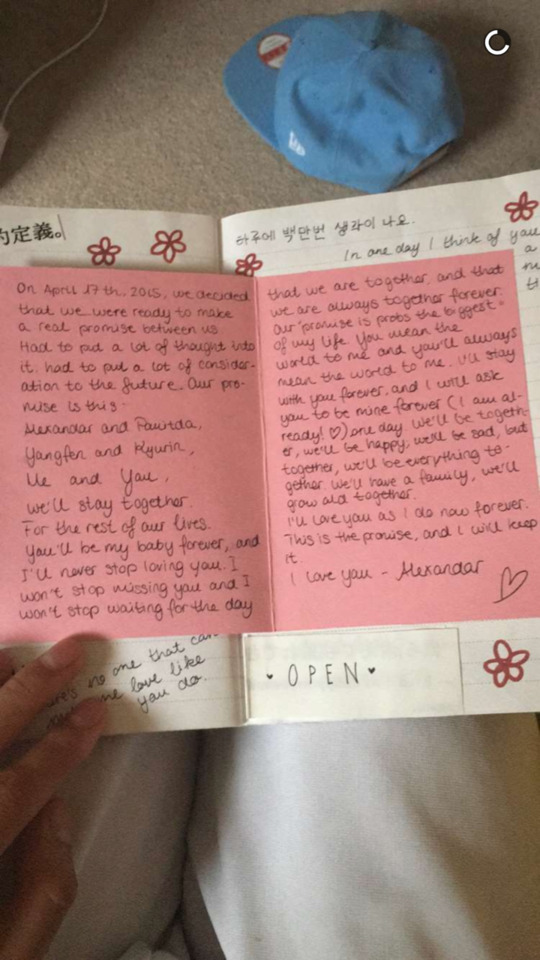 的定義。
하루에 백만번 생각이 나요.
In one day I think of you
a
On April 17th, 2015, we decided
that we were ready to make
a real promise between us.
Had to put a lot of thought into
it, had to put a lot of consider-
ation to the future. Our pro-
mise is this-
Alexandar and Panitda,
Yangfen and Kyurin,
Me and You,
we'll stay together.
For the rest of our lives.
You'll be my baby forever, and
I'll never stop loving you. I
won't stop missing you and I
won't stop waiting for the day
that we are together, and that
we are always together forever.
Our promise is probs the biggest
of my life. You mean the
world to me and you'll always
mean the world to me. I'll stay
with you forever, and I will ask
you to be mine forever (I am al-
ready! ♡) one day. We'll be togeth-
er, we'll be happy, we'll be sad, but
together, we'll be everything to-
gether. We'll have a family, we'll
grow old together.
I'll love you as I do now forever.
This is the promise, and I will keep
it.
I love you - Alexandar ♡
no one that can
me love like
you do.
♥ OPEN ♥